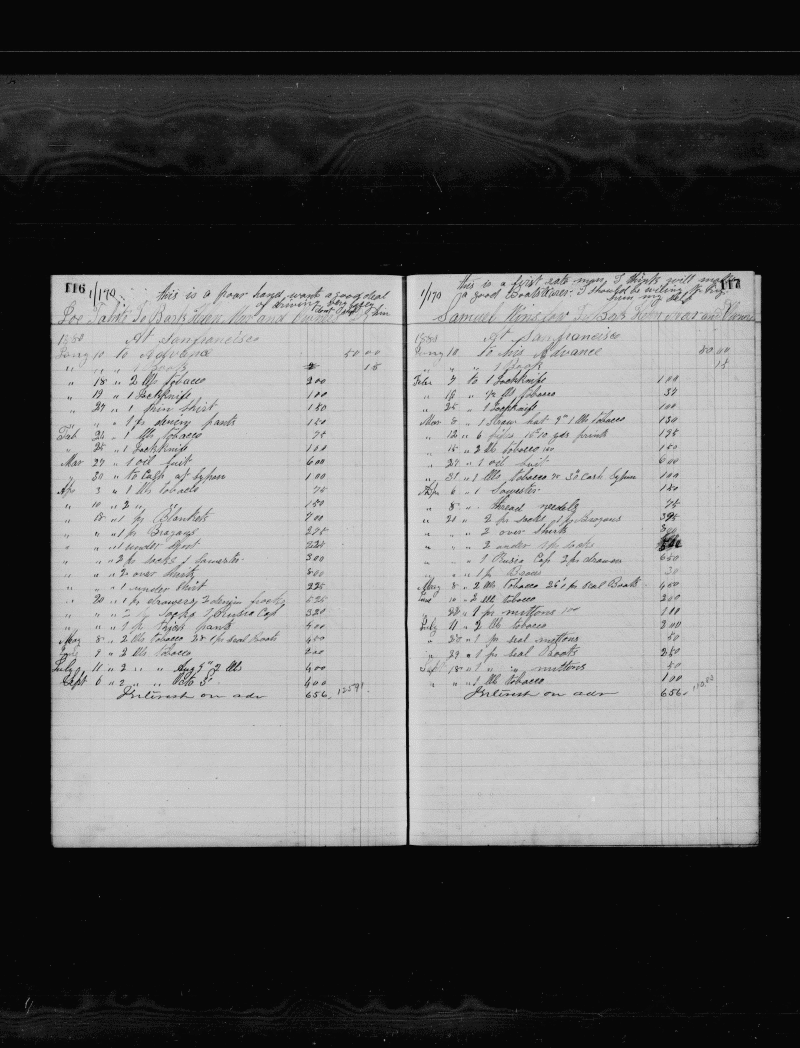 116
1/170 this is a poor hand, want a good deal
of driving very lazy
dont want him
Joe To Bark Helen Mar and Owners
1883 At Sanfrancisco
Jany 10 to Advance 50 00
" " " 1 Book 15
" 18 " 2 lbs tobacco 200
" 19 " 1 Jackknife 100
" 27 " 1 shirt 150
" " " 1 pr pants 150
Feb 24 " 1 lb tobacco 75
" 25 " 1 Jackknife 100
Mar 27 " 1 oil suit 600
" 30 " to Cash at 100
Apr 3 " 1 lb tobacco 75
" 10 " 2 " " 150
" 18 " 1 pr Blankets 700
" " " 1 pr Brogans 275
" " " 1 under shirt 225
" " " 2 pr socks 1 Sowester 300
" " " 2 over shirts 500
" " " 1 under shirt 225
" 20 " 1 pr drawers 2 frocks 525
" " " 2 pr Socks 1 Rusia Cap 320
" " " 1 pr thick pants 400
May 8 " 2 lbs tobacco 28 1 pr seal Boots 450
June 9 " 2 lbs tobacco 200
July 11 " 2 " " Aug 9th 2 lbs 400
Sept 6 " 2 " " Octo 3d 400
Interest on adv 656
117
1/170 this is a first rate man, I think will make
a good Boatsteerer. I should be willing to try
him my self
Samuel To Bark Helen Mar and Owners
1883 At Sanfrancisco
Jany 10 to his Advance 50 00
" " " 1 Book 15
Feb 7 to 1 Jackknife 100
" 16 " 1/2 lb tobacco 37
" 25 " 1 Jackknife 100
Mar 8 " 1 Straw hat 9th 1 lb tobacco 130
" 12 " 6 pipes 15th 10 yds print 175
" 15 " 2 lb tobacco 150
" 27 " 1 oil suit 600
" 31 " 1 lb tobacco 75 30 Cash 100
Apr 6 " 1 Sowester
" 8 " thread needles 75
" 21 " 2 pr socks 1 pr Brogans 395
" " " 2 over shirts 500
" " " 2 under 2 pr socks
" " " 1 Rusia Cap 2 pr drawers 650
" " " 1 pr Braces 30
May 8 " 2 lbs tobacco 26th 1 pr seal Boots 450
June 10 " 2 lb tobacco 200
" 22 " 1 pr mittons 100 110
July 11 " 2 lb tobacco 200
" 20 " 1 pr seal mittons 50
" 29 " 1 pr seal Boots 250
Sept 18 " 1 " " mittons 50
" " " 1 lb tobacco 100
Interest on adv 656